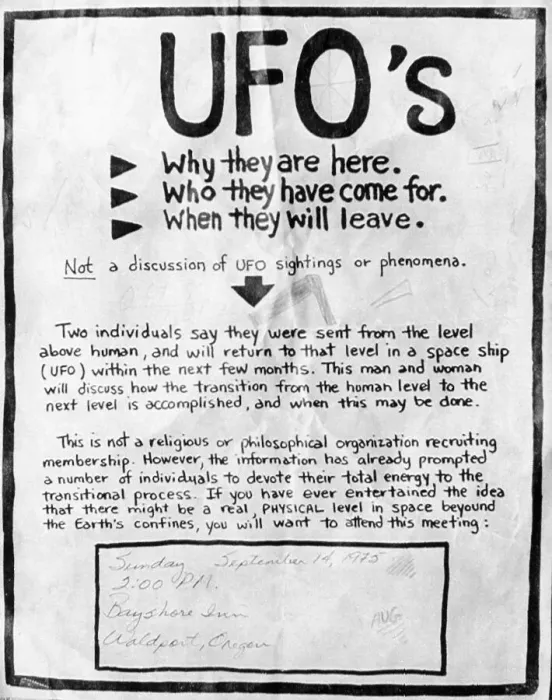 UFO's
Why they are here.
Who they have come for.
When they will leave.
Not a discussion of UFO sightings or phenomena.
Two individuals say they were sent from the level
above human, and will return to that level in a space ship
(UFO) within the next few months. This man and woman
will discuss how the transition from the human level to the
next level is accomplished, and when this may be done.
This is not a religious or philosophical organization recruiting
membership. However, the information has already prompted
a number of individuals to devote their total energy to the
transitional process. If you have ever entertained the idea
that there might be a real, PHYSICAL level in space beyound
the Earth's confines, you will want to attend this meeting:
Sunday September 14, 1975
2:00 PM.
Bayshore Inn
AUG
Waldport, Oregon